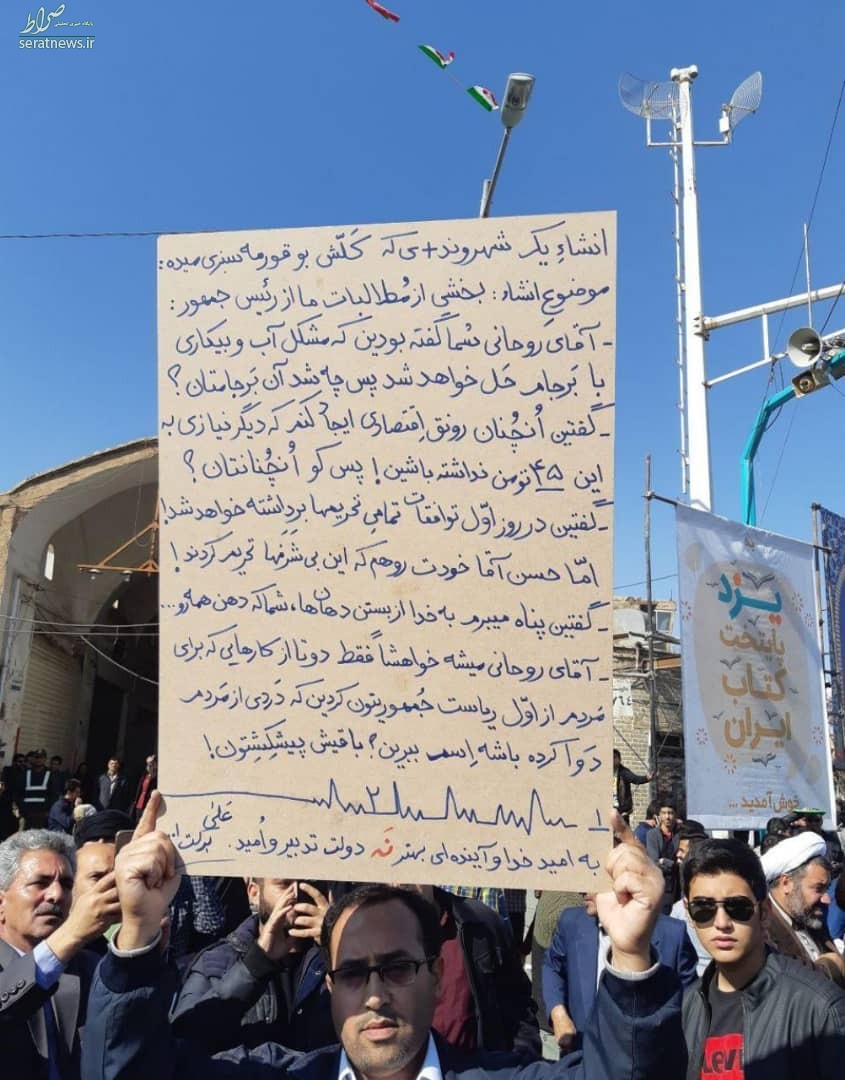 صراط
پایگاه خبری تحلیلی
seratnews.ir
انشاءِ یک شهروند+ی که کَلّش بو قورمه سبزی میده:
موضوع انشاء: بخشی از مُطالبات ما از رئیس جمهور:
- آقای روحانی شما گفته بودین که مشکل آب و بیکاری
با بَرجام حَل خواهد شد پس چه شد آن بَرجامتان؟
- گفتین اُنچُنان رونق اِقتصادی ایجاد کنم که دیگر نیازی به
این ۴۵ تومن نداشته باشین! پس کو اُنچُنانتان؟
- گفتین در روز اوّل توافقات تمامیِ تحریمها برداشته خواهد شد!
امّا حسن آقا خودت رو هم که این بی شَرَفها تحریم کردند!
- گفتین پناه میبرم به خدا از بستن دهان ها، شما که دهن همه رو...
- آقای روحانی میشه خواهشاً فقط دو تا از کارهایی که برای
مَردم از اوّل ریاست جُمهوریتون کردین که دَردی از مَردم
دَوا کرده باشه اِسم ببرین؟ باقیش پیشکِشِتون!
۱ ۲
به امید خدا و آینده ای بهتر نَه دولت تدبیر و اُمید. علی
یزد
پایتخت
کتاب
ایران
خوش آمدید ...
Levi